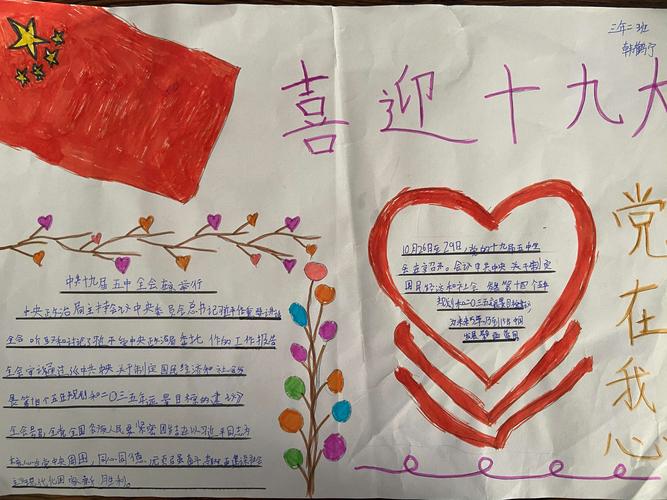 三年二班
韩鹤宁
喜迎十九大
党在我心
10月26日至29日,党的十九届五中全
会在京召开。会议 中共中央 关于制定
国民经济和社会 发展第十四个五年
规划和二〇三五年远景目标建议
为未来5年乃至15年中国
发展 目
中共十九届五中全会在京举行
中央政治局主持会议 中央委员会总书记 作重要讲话
全会听取和讨论了 中央政治局委托 作的工作报告
全会审议通过 中共中央关于制定国民经济和社会
发展第十四个五年规划和二〇三五年远景目标的建议
全会号召,全党全国各族人民要紧密团结在以习近平同志为
核心的党中央周围,同心同德,
现代化国家新胜利。